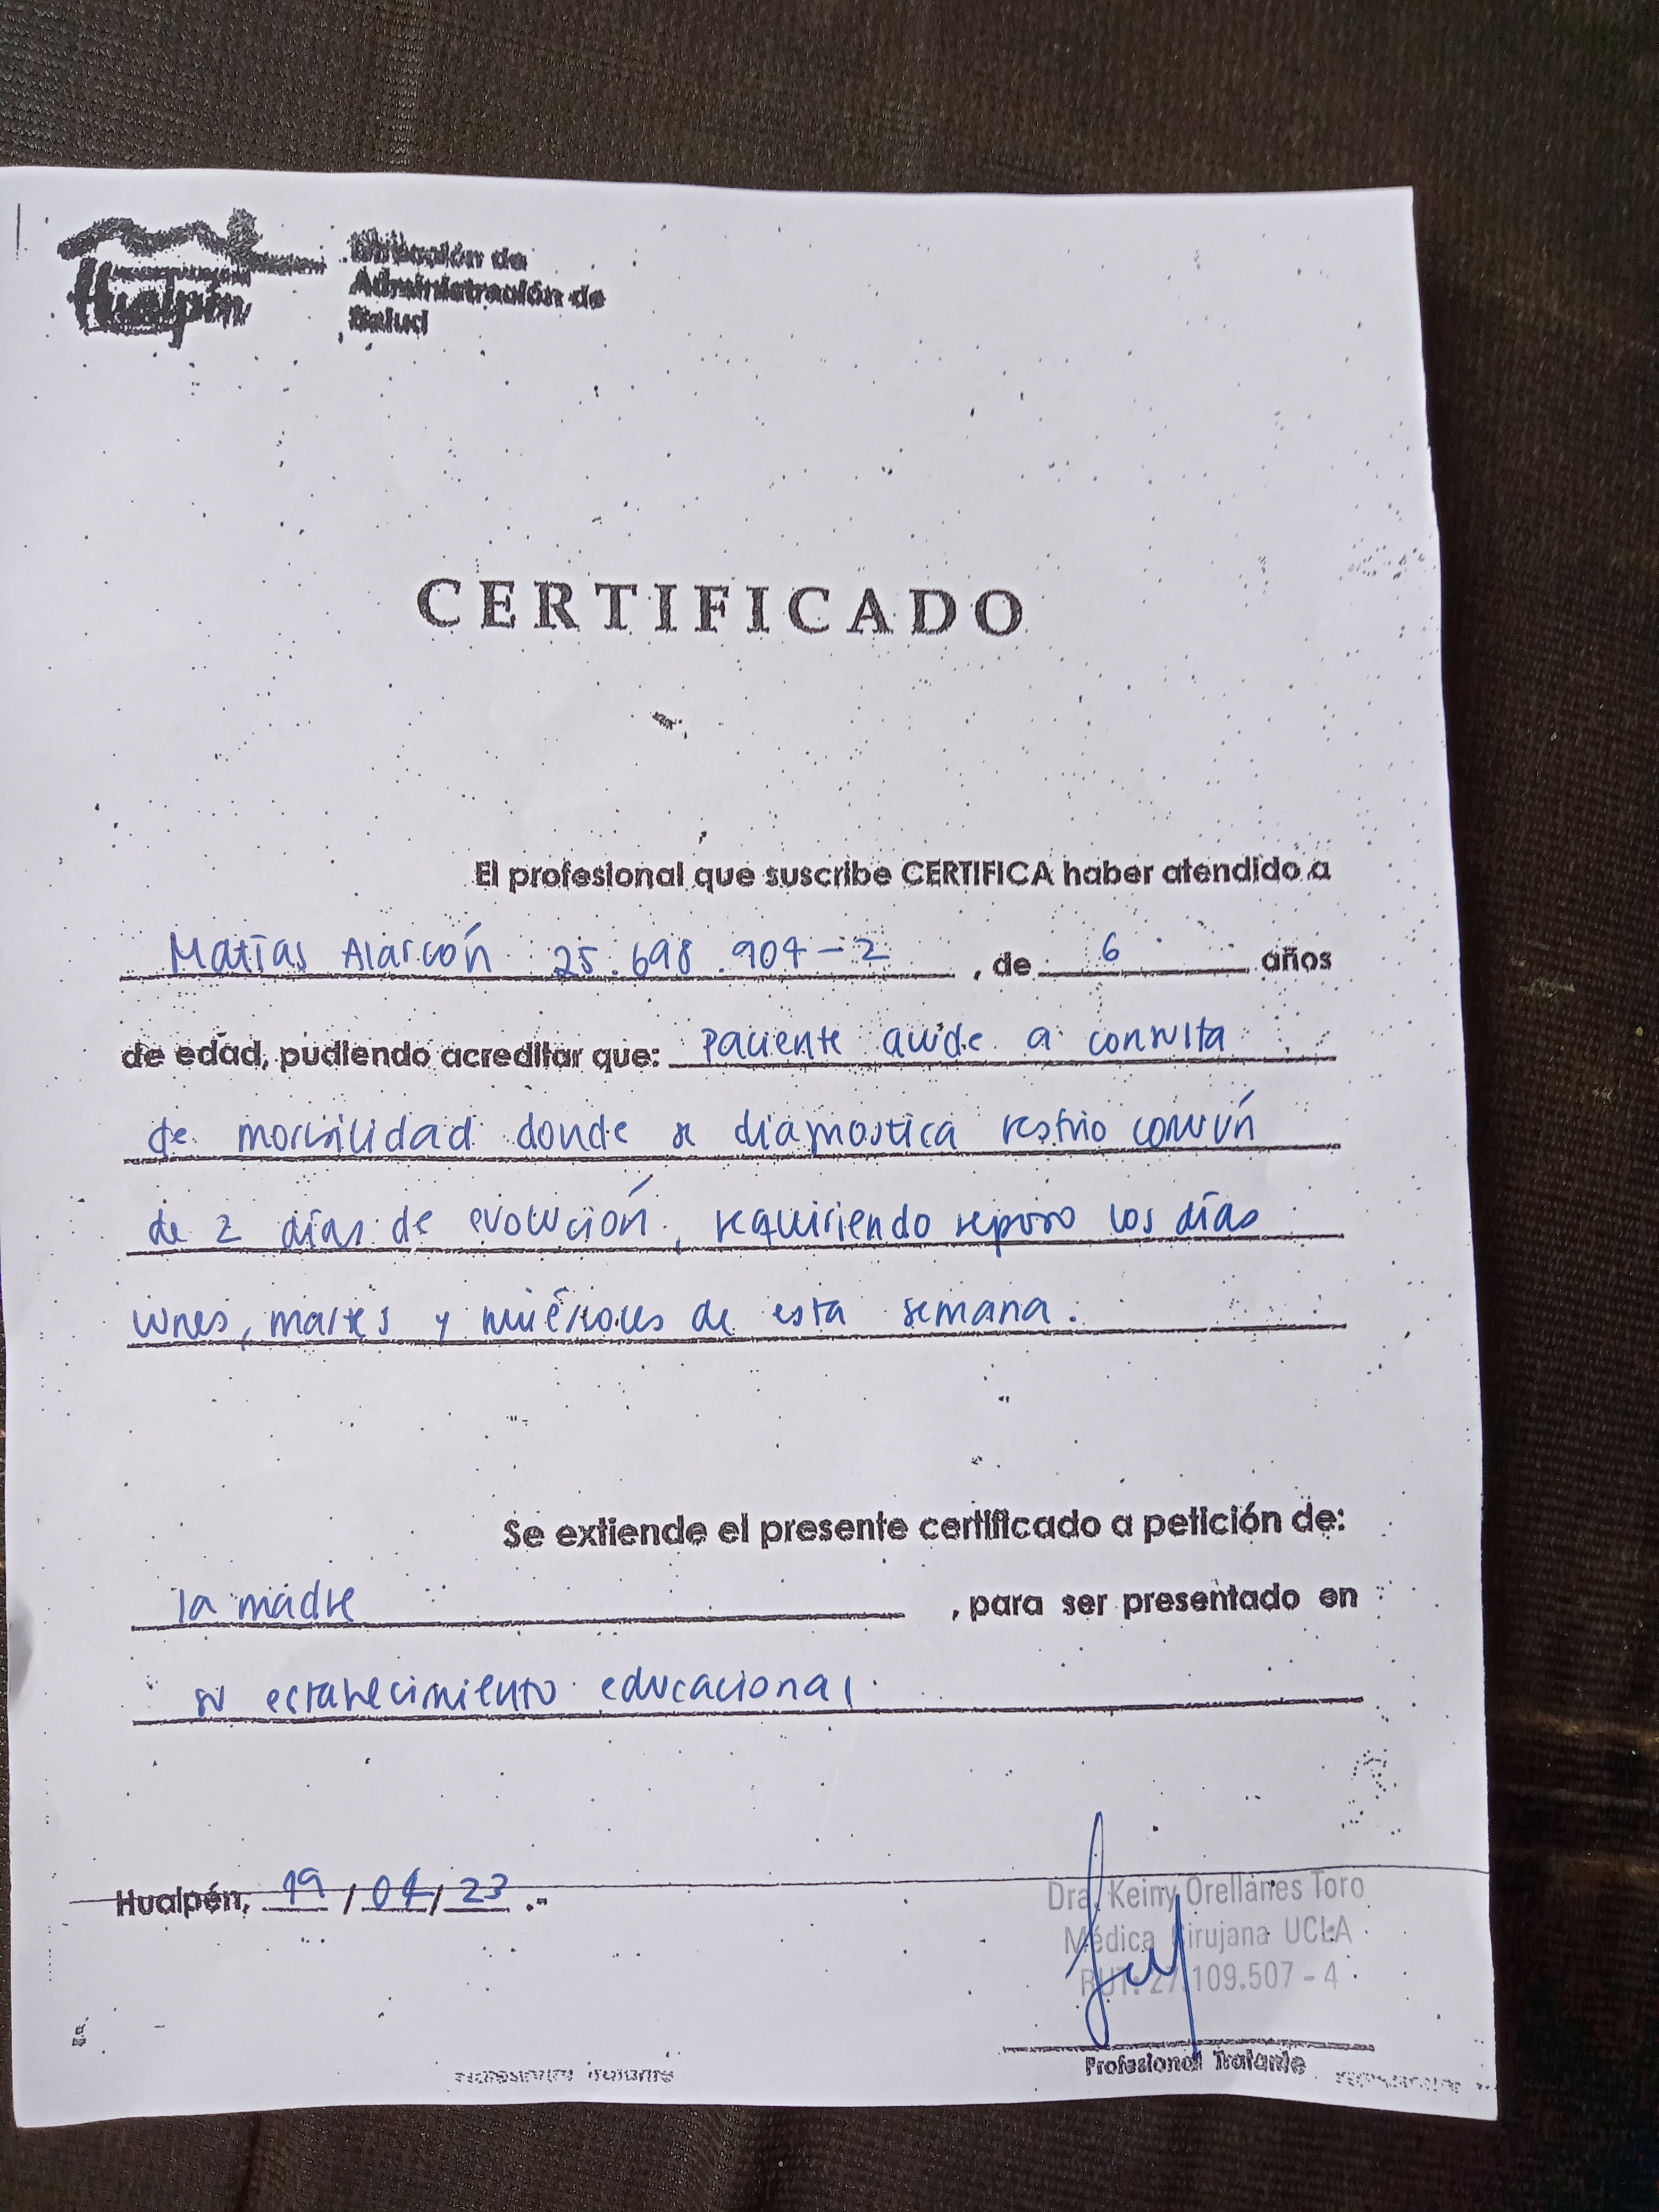 Hualpén
Dirección de
Administración de
Salud
CERTIFICADO
El profesional que suscribe CERTIFICA haber atendido a
Matías Alarcón 25.698.904-2, de 6 años
de edad, pudiendo acreditar que: Paciente acude a consulta
de morbilidad donde se diagnostica resfrio común
de 2 días de evolución, requiriendo reposo los días
lunes, martes y miércoles de esta semana.
Se extiende el presente certificado a petición de:
la madre, para ser presentado en
su establecimiento educacional.
Hualpén, 19/04/23.-
Dra. Keiny Orellanes Toro
Médica Cirujana UCLA
RUT: 27.109.507-4
Profesional Tratante